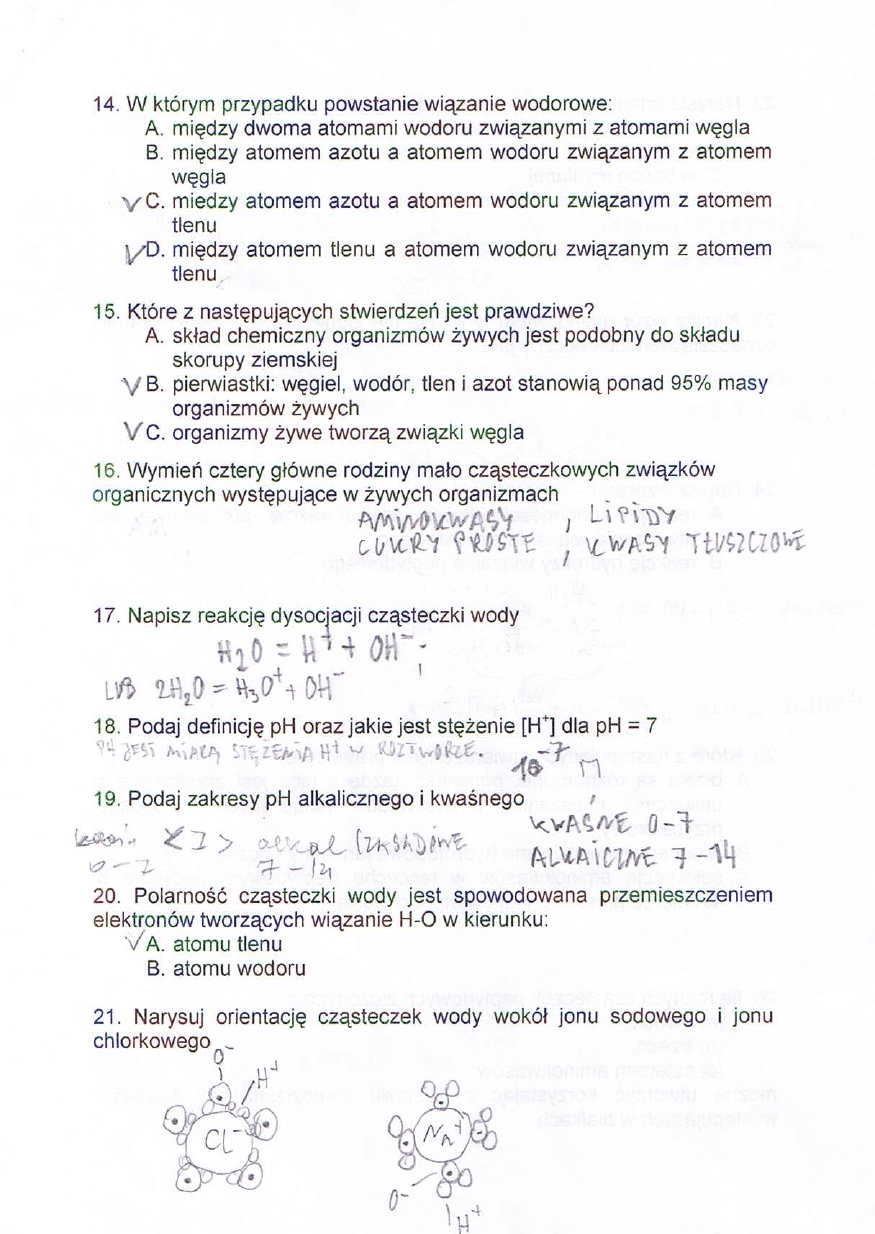 14. W którym przypadku powstanie wiązanie wodorowe:
A. między dwoma atomami wodoru związanymi z atomami węgla
B. między atomem azotu a atomem wodoru związanym z atomem
węgla
V C. miedzy atomem azotu a atomem wodoru związanym z atomem
tlenu
V D. między atomem tlenu a atomem wodoru związanym z atomem
tlenu
15. Które z następujących stwierdzeń jest prawdziwe?
A. skład chemiczny organizmów żywych jest podobny do składu
skorupy ziemskiej
V B. pierwiastki: węgiel, wodór, tlen i azot stanowią ponad 95% masy
organizmów żywych
V C. organizmy żywe tworzą związki węgla
16. Wymień cztery główne rodziny mało cząsteczkowych związków
organicznych występujące w żywych organizmach
AMINOKWASY , LIPIDY
CUKRY PROSTE , KWASY TŁUSZCZOWE
17. Napisz reakcję dysocjacji cząsteczki wody
H2O = H⁺ + OH⁻
LUB 2H₂O = H₃O⁺ + OH⁻
18. Podaj definicję pH oraz jakie jest stężenie [H⁺] dla pH = 7
PH JEST MIARĄ STĘŻENIA H⁺ W ROZTWORZE. 10⁻⁷ M
19. Podaj zakresy pH alkalicznego i kwaśnego
KWAŚNE 0-7
< 7 > alkal (ZASADOWE
ALKAICZNE 7-14
0-7 7 14
20. Polarność cząsteczki wody jest spowodowana przemieszczeniem
elektronów tworzących wiązanie H-O w kierunku:
V A. atomu tlenu
B. atomu wodoru
21. Narysuj orientację cząsteczek wody wokół jonu sodowego i jonu
chlorkowego
O⁻
H⁺
Cl⁻
Na⁺
O⁻
H⁺